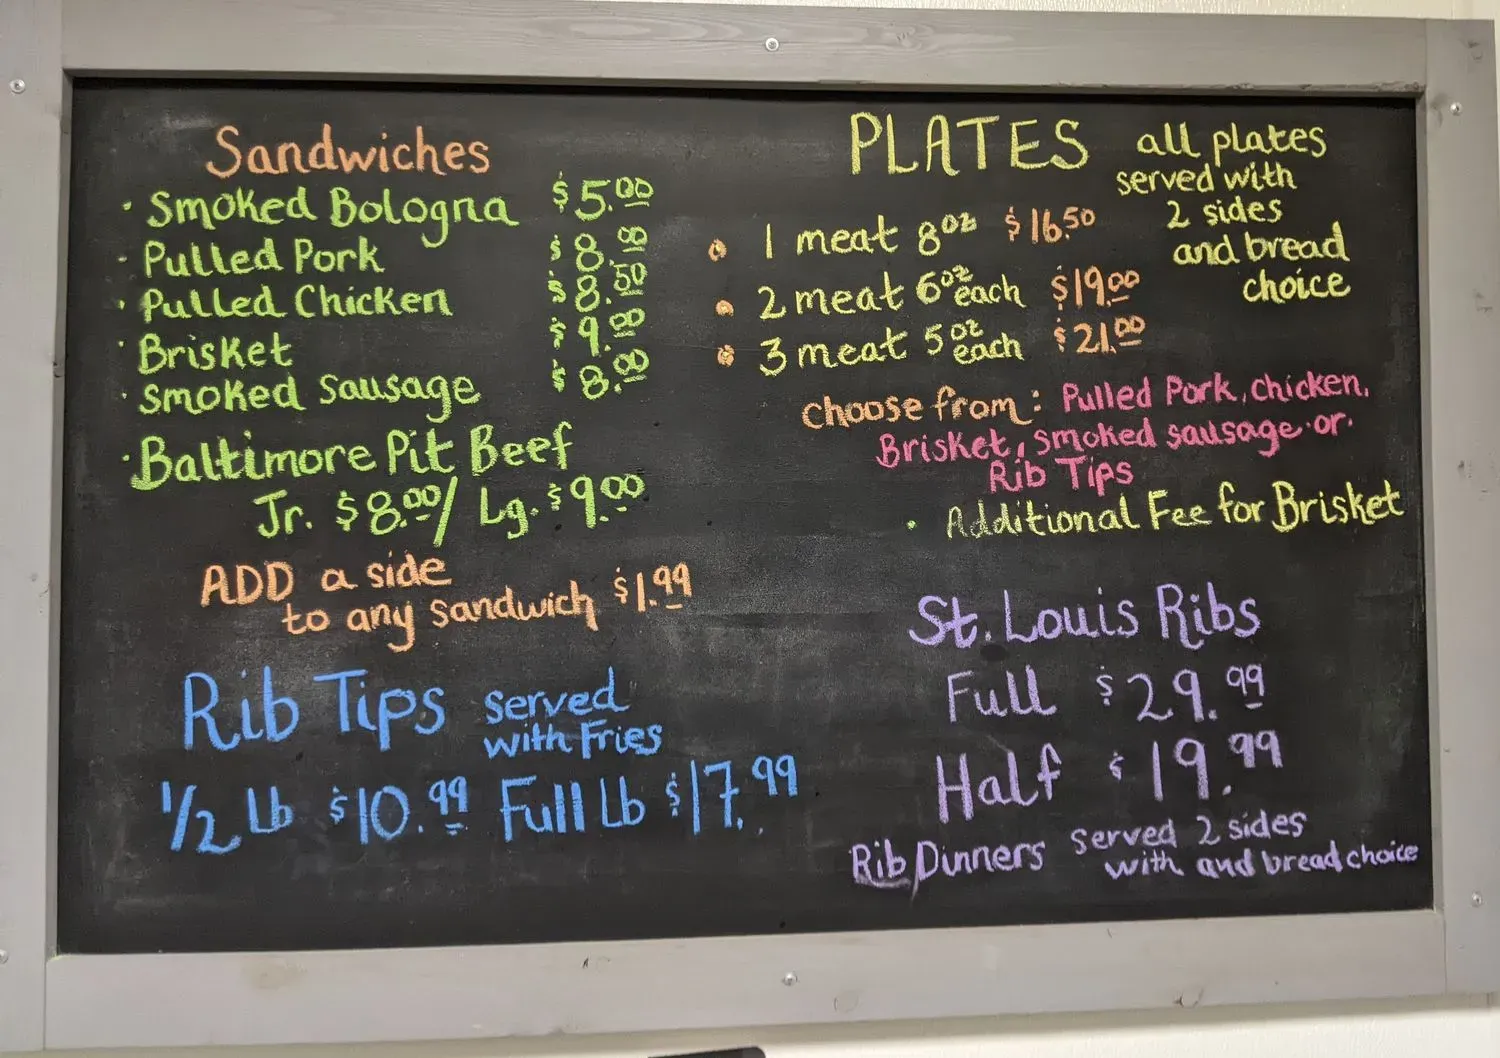 Sandwiches
· Smoked Bologna $5.00
· Pulled Pork $8.00
· Pulled Chicken $8.50
· Brisket $9.00
· Smoked Sausage $8.00
· Baltimore Pit Beef
Jr. $8.00/ Lg. $9.00
ADD a side
to any sandwich $1.99
Rib Tips served
with Fries
1/2 Lb $10.99 Full Lb $17.99
PLATES
all plates
served with
2 sides
and bread
choice
1 meat 8oz $16.50
2 meat 6oz each $19.00
3 meat 5oz each $21.00
choose from: Pulled Pork, chicken,
Brisket, smoked sausage or
Rib Tips
· Additional Fee for Brisket
St. Louis Ribs
Full $29.99
Half $19.99
Rib Dinners served 2 sides
with and bread choice